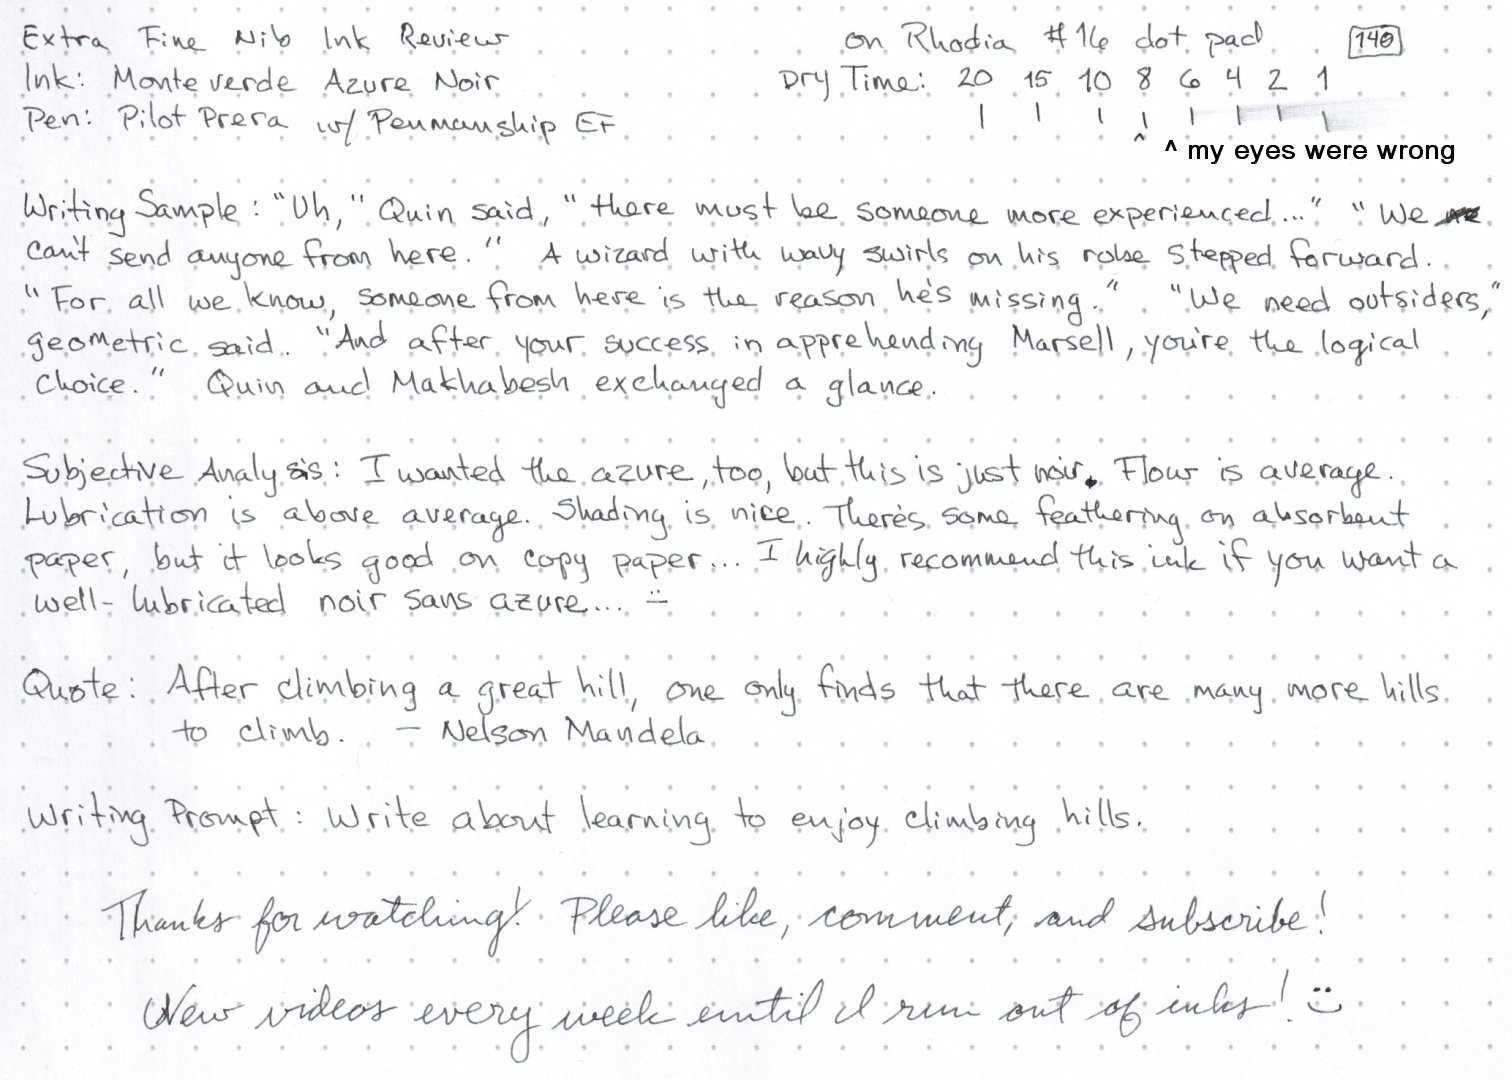 Extra Fine Nib Ink Review on Rhodia #16 dot pad 140
Ink: Monteverde Azure Noir Dry Time: 20 15 10 8 6 4 2 1
Pen: Pilot Prera w/ Penmanship EF
^ ^ my eyes were wrong
Writing Sample: "Uh," Quin said, "there must be someone more experienced..." "We
can't send anyone from here." A wizard with wavy swirls on his robe stepped forward.
"For all we know, someone from here is the reason he's missing." "We need outsiders,"
geometric said. "And after your success in apprehending Marsell, you're the logical
choice." Quin and Makhabesh exchanged a glance.
Subjective Analysis: I wanted the azure, too, but this is just noir. Flow is average.
Lubrication is above average. Shading is nice. There's some feathering on absorbent
paper, but it looks good on copy paper... I highly recommend this ink if you want a
well-lubricated noir sans azure... :-
Quote: After climbing a great hill, one only finds that there are many more hills
to climb. - Nelson Mandela
Writing Prompt: Write about learning to enjoy climbing hills.
Thanks for watching! Please like, comment, and subscribe!
New videos every week until I run out of inks! :)